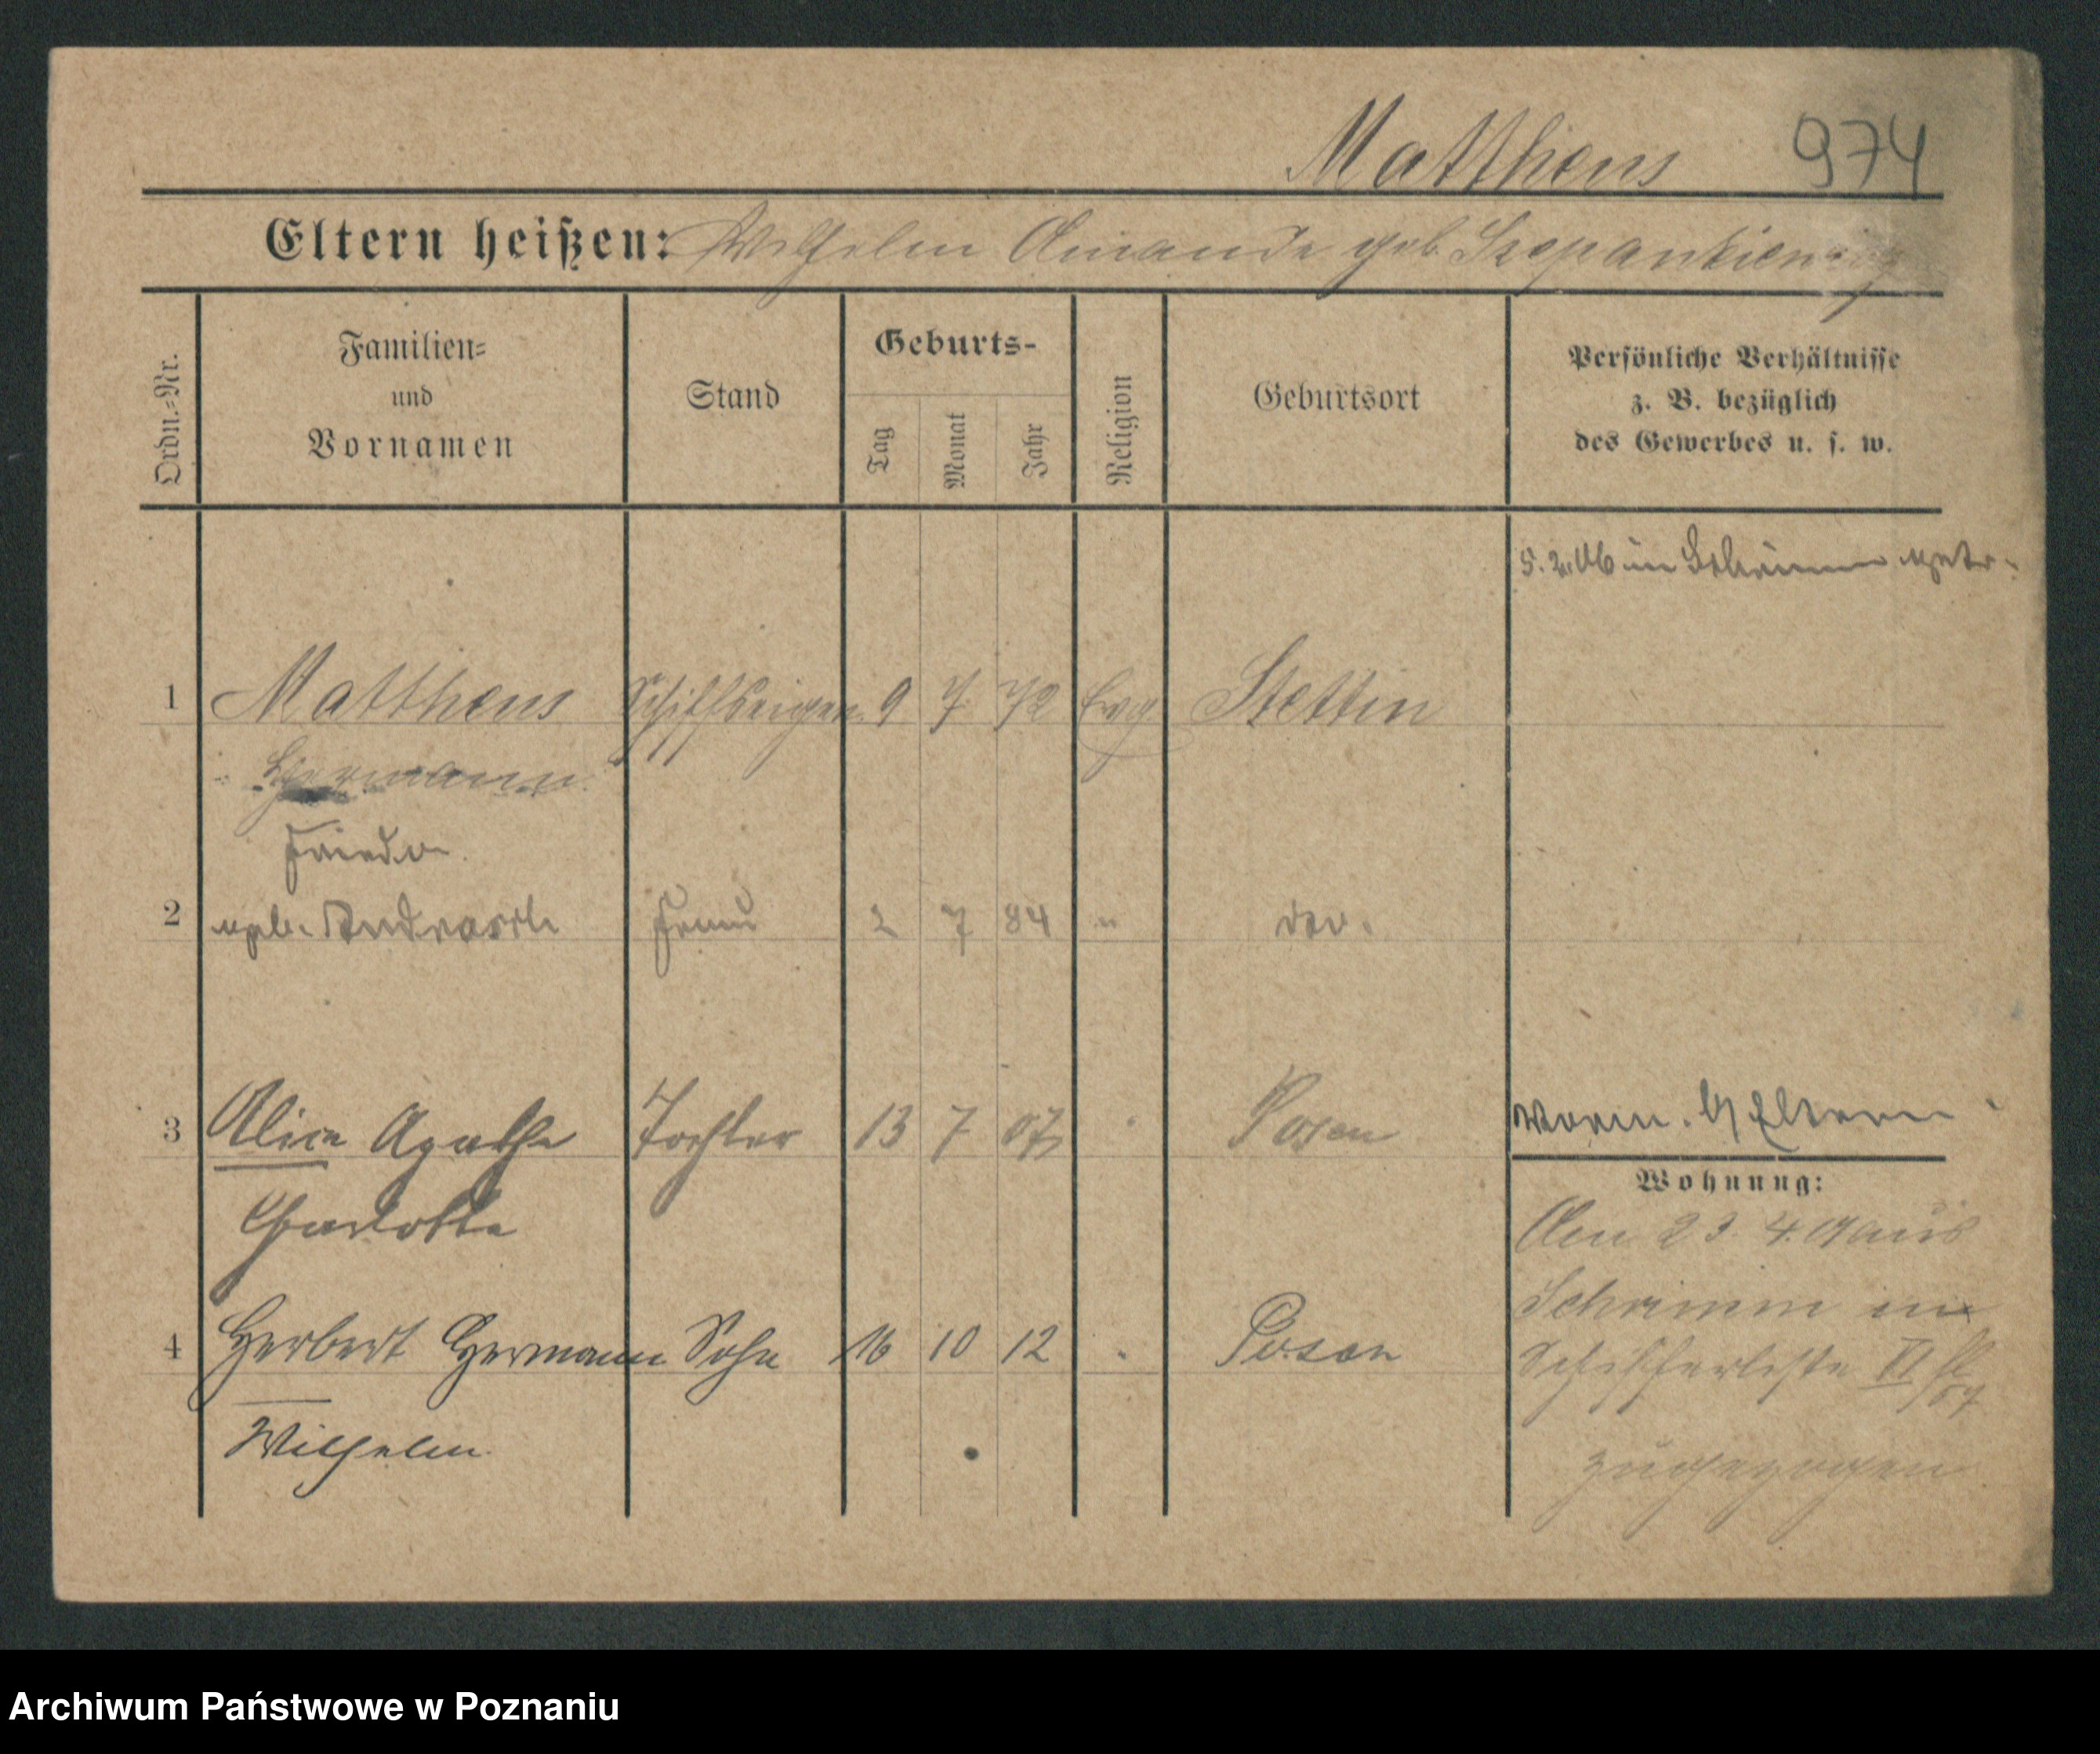 Mattheus 974
Eltern heißen: Wilhelm Amande geb. Szepankiewicz
Ordn.-Nr.
Familien-
und
Vornamen
Stand
Geburts-
Tag
Monat
Jahr
Religion
Geburtsort
Persönliche Verhältnisse
z. B. bezüglich
des Gewerbes u. s. w.
5. 2. 06 in Schrimm getr.
1 Mattheus Schiffseigen. 9 7 72 Evg Stettin
Hermann
Frieda
2 geb. Frau 2 7 84 " do.
3 Alice Agathe Tochter 13 7 07 " Posen
Charlotte
Wohnung:
23. 4. aus
4 Herbert Hermann Sohn 16 10 12 " Posen
Schrimm in
Schifferliste VI
Wilhelm
zugezogen
Archiwum Państwowe w Poznaniu